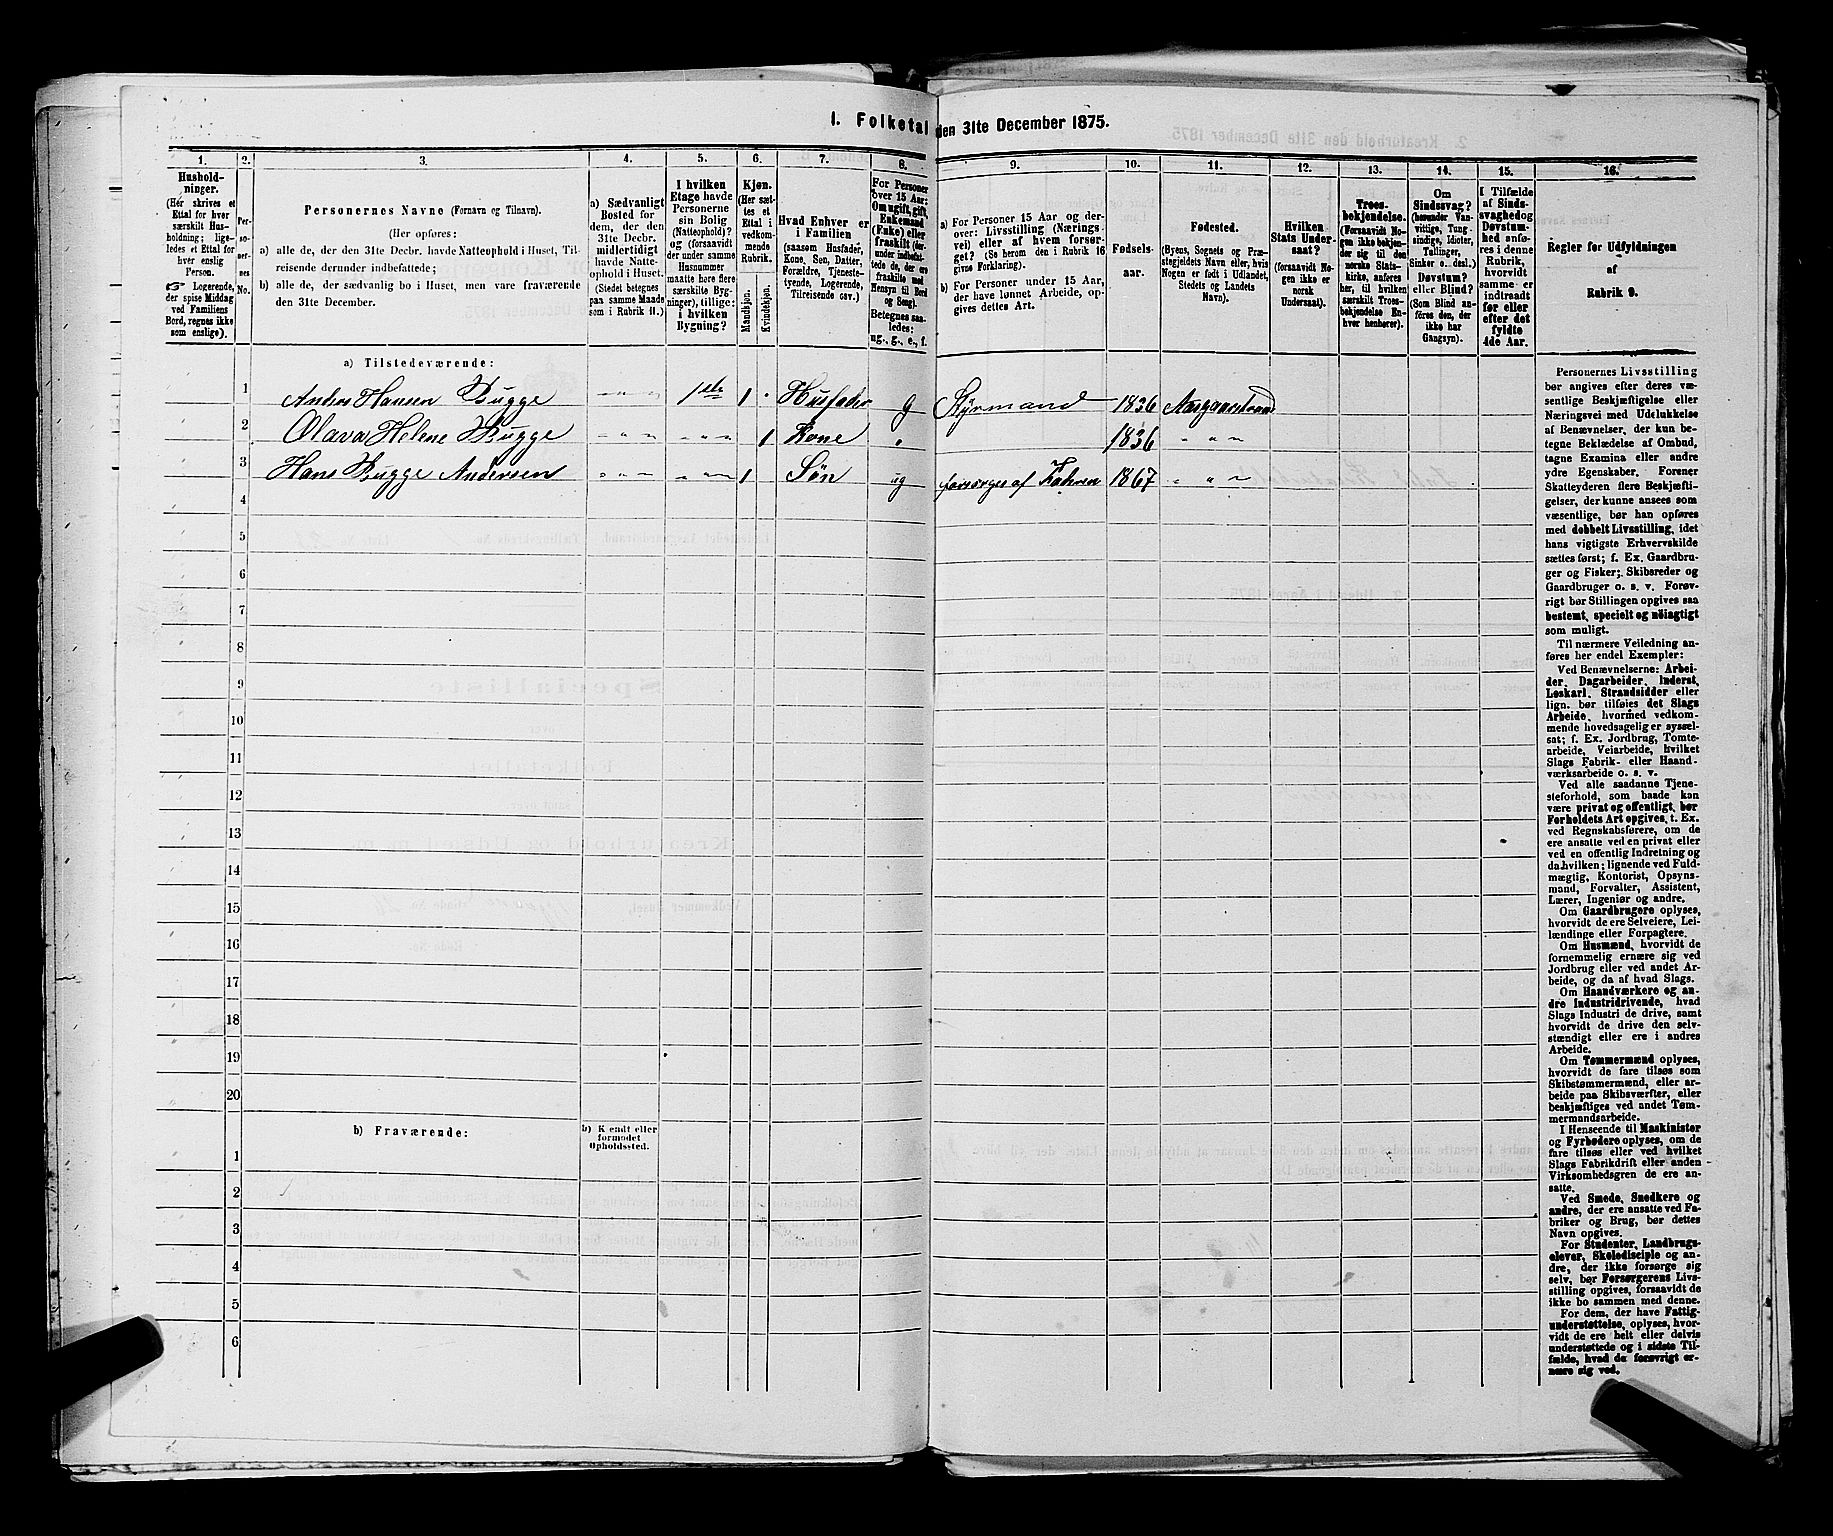 1. Folketal den 31te December 1875.
1. 2. 3. 4. 5. 6. 7. 8. 9. 10. 11. 12. 13. 14. 15. 16.
Hushold-
ninger.
(Her skrives et
Ettal for hver
særskilt Hus-
holdning; lige-
ledes et Ettal for
hver enslig
Person.
☞ Logerende,
der spise Middag
ved Familiens
Bord, regnes ikke
som enslige).
Per-
so-
ner-
nes
No.
Personernes Navne (Fornavn og Tilnavn).
(Her opføres:
a) alle de, der den 31te Decbr. havde Natteophold i Huset, Til-
reisende derunder indbefattede;
b) alle de, der sædvanlig bo i Huset, men vare fraværende
den 31te December.
a) Sædvanligt
Bosted for
dem, der den
31te Decbr.
midlertidigt
havde Natte-
ophold i Huset.
(Stedet betegnes
paa samme Maade
som i Rubrik 11.)
I hvilken
Etage havde
Personerne
sin Bolig
(Natteophold)?
og (forsaavidt
der under samme
Husnummer
maatte høre flere
særskilte Byg-
ninger), tillige:
i hvilken
Bygning?
Kjøn.
(Her sæt-
tes et
Ettal i
vedkom-
mende
Rubrik.
Mandkjøn.
Kvindekjøn.
Hvad Enhver er
i Familien
(saasom Husfader,
Kone, Søn, Datter,
Forældre, Tjeneste-
tyende, Logerende,
Tilreisende osv.).
For Personer
over 15 Aar:
Om ugift, gift,
Enkemand
(Enke) eller
fraskilt (der-
under indbefat-
tede de, der ere
fraskilte med
Hensyn til Bord
og Seng).
Betegnes saa-
ledes:
ug., g., e., f.
a) For Personer 15 Aar og der-
over: Livsstilling (Nærings-
vei) eller af hvem forsør-
get? (Se herom den i Rubrik 16
givne Forklaring).
b) For Personer under 15 Aar,
der have lønnet Arbeide, op-
gives dettes Art.
Fødsels-
aar.
Fødested.
(Byens, Sognets og Præ-
stegjeldets Navn eller, hvis
Nogen er født i Udlandet,
Stedets og Landets
Navn).
Hvilken
Stats Under-
saat?
(forsaavidt No-
gen ikke er
norsk
Undersaat).
Troes-
bekjendelse.
(Forsaavidt No-
gen ikke bekjen-
der sig til den
norske Stats-
kirke, anføres
her, til hvilken
særskilt Troes-
bekjendelse En-
hver henhører).
Om
Sindssvag?
(herunder Van-
vittige, Tung-
sindige, Idioter,
Tullinger,
Sinker o. desl.).
Døvstum?
eller Blind?
(Som Blind an-
føres den, der
ikke har
Gangsyn).
I Tilfælde
af Sinds-
svaghed og
Døvstum-
hed anfø-
res i denne
Rubrik,
hvorvidt
samme er
indtraadt
før eller
efter det
fyldte
4de Aar.
Regler for Udfyldningen
af
Rubrik 9.
a) Tilstedeværende:
1 Anders Hansen Bugge " " " 1ste 1 . Husfader g Styrmand 1836 Aasgaardstrand
2 Olava Helene Bugge " " " " " " 1 Kone " 1836 " " "
3 Hans Bugge Andersen " " " " " " 1 Søn ug forsørges af Faderen 1867 " " "
4
5
6
7
8
9
10
11
12
13
14
15
16
17
18
19
20
b) Fraværende:
b) Kjendt eller
formodet
Opholdssted.
1
2
3
4
5
6
Personernes Livsstilling
bør angives efter deres væ-
sentlige Beskjæftigelse eller
Næringsvei med Udelukkelse
af Benævnelser, der kun be-
tegne Beklædelse af Ombud,
tagne Examina eller andre
ydre Egenskaber. Forener
Skatteyderen flere Beskjæfti-
gelser, der kunne ansees som
væsentlige, bør han opføres
med dobbelt Livsstilling, idet
hans vigtigste Erhvervskilde
sættes først; f. Ex. Gaardbru-
ger og Fisker; Skibsreder og
Gaardbruger o. s. v. Forøv-
rigt bør Stillingen opgives saa
bestemt, specielt og nöiagtigt
som muligt.
Til nærmere Veiledning an-
føres her endel Exempler:
Ved Benævnelserne: Arbei-
der, Dagarbeider, Inderst,
Løskarl, Strandsidder eller
lign. bør tilføies det Slags
Arbeide, hvormed vedkom-
mende hovedsagelig er syssel-
sat; f. Ex. Jordbrug, Tomte-
arbeide, Veiarbeide, hvilket
Slags Fabrik- eller Haand-
værksarbeide o. s. v.
Ved alle saadanne Tjene-
steforhold, som baade kan
være privat og offentligt, bør
Forholdets Art opgives, t. Ex.
ved Regnskabsførere, om de
ere ansatte ved en privat eller
ved en offentlig Indretning og
da hvilken; lignende ved Fuld-
mægtig, Kontorist, Opsyns-
mand, Forvalter, Assistent,
Lærer, Ingeniør og andre.
Om Gaardbrugere oplyses,
hvorvidt de ere Selveiere, Lei-
lændinge eller Forpagtere.
Om Husmænd, hvorvidt de
fornemmelig ernære sig ved
Jordbrug eller ved andet Ar-
beide, og da af hvad Slags.
Om Haandværkere og an-
dre Industridrivende, hvad
Slags Industri de drive, samt
hvorvidt de drive den selv-
stændigt eller ere i andres
Arbeide.
Om Tømmermænd oplyses,
hvorvidt de fare tilsøs som
Skibstømmermænd, eller ar-
beide paa Skibsværfter, eller
beskjæftiges ved andet Tøm-
mermandsarbeide.
I Henseende til Maskinister
og Fyrbødere oplyses, om de
fare tilsøs eller ved hvilket
Slags Fabrikdrift eller anden
Virksomhedsgren de ere an-
satte.
Ved Smede, Snedkere og
andre, der ere ansatte ved Fa-
briker og Brug, bør dettes
Navn opgives.
For Studenter, Landbrugs-
elever, Skoledisciple og an-
dre, der ikke forsørge sig
selv, bør Forsørgerens Livs-
stilling opgives, forsaavidt de
ikke bo sammen med denne.
For dem, der have Fattig-
understøttelse, oplyses, hvor-
vidt de ere helt eller delvis
understøttede og i sidste Til-
fælde, hvad de forøvrigt er-
nære sig ved.